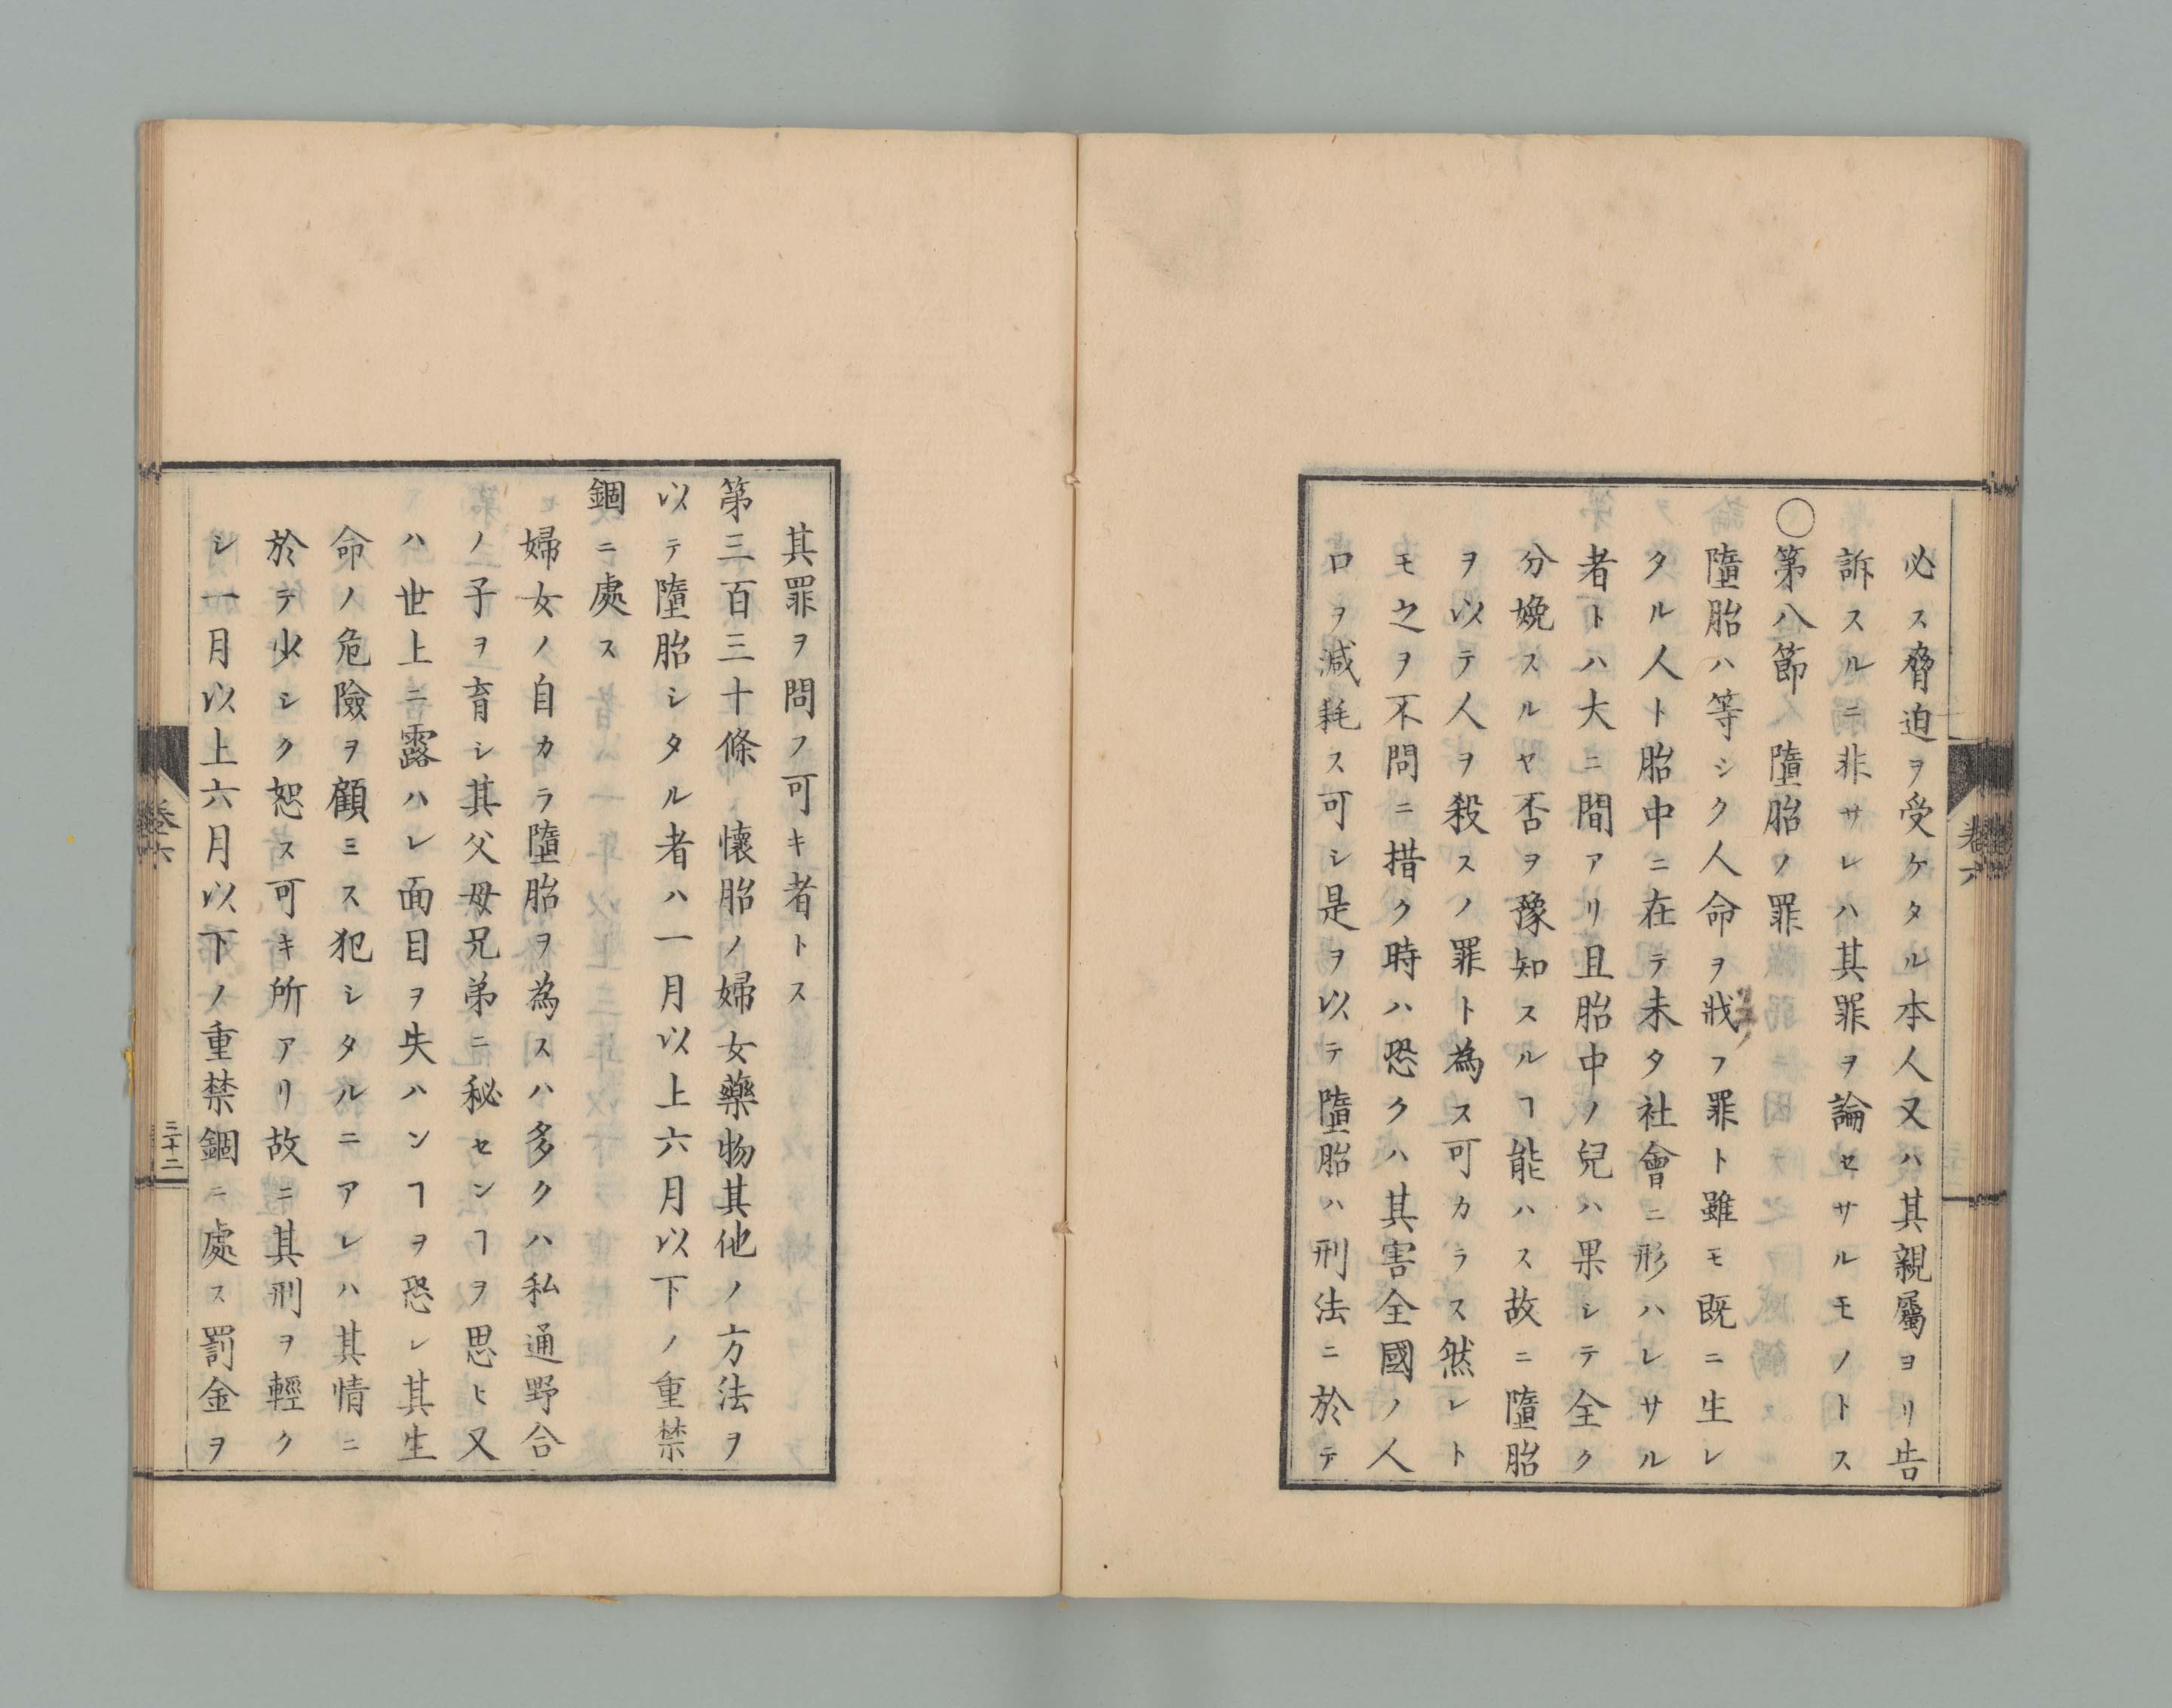 必ス脅迫ヲ受ケタル本人又ハ其親屬ヨリ告
訴スルニ非サレハ其罪ヲ論セサルモノトス
○第八節 墮胎ノ罪
墮胎ハ等シク人命ヲ戕フ罪ト雖モ既ニ生レ
タル人ト胎中ニ在テ未タ社會ニ形ハレサル
者トハ大ニ間アリ且胎中ノ兒ハ果シテ全ク
分娩スルヤ否ヲ豫知スルヿ能ハス故ニ墮胎
ヲ以テ人ヲ殺スノ罪ト為ス可カラス然レト
モ之ヲ不問ニ措ク時ハ恐クハ其害全國ノ人
口ヲ減耗ス可シ是ヲ以テ墮胎ハ刑法ニ於テ
卷六
其罪ヲ問フ可キ者トス
第三百三十條、懷胎ノ婦女藥物其他ノ方法ヲ
以テ墮胎シタル者ハ一月以上六月以下ノ重禁
錮ニ處ス
婦女ノ自カラ墮胎ヲ為スハ多クハ私通野合
ノ子ヲ育シ其父母兄弟ニ秘センヿヲ思ヒ又
ハ世上ニ露ハレ面目ヲ失ハンヿヲ恐レ其生
命ノ危險ヲ顧ミス犯シタルニアレハ其情ニ
於テ少シク恕ス可キ所アリ故ニ其刑ヲ輕ク
シ一月以上六月以下ノ重禁錮ニ處ス罰金ヲ
卷六
三十二